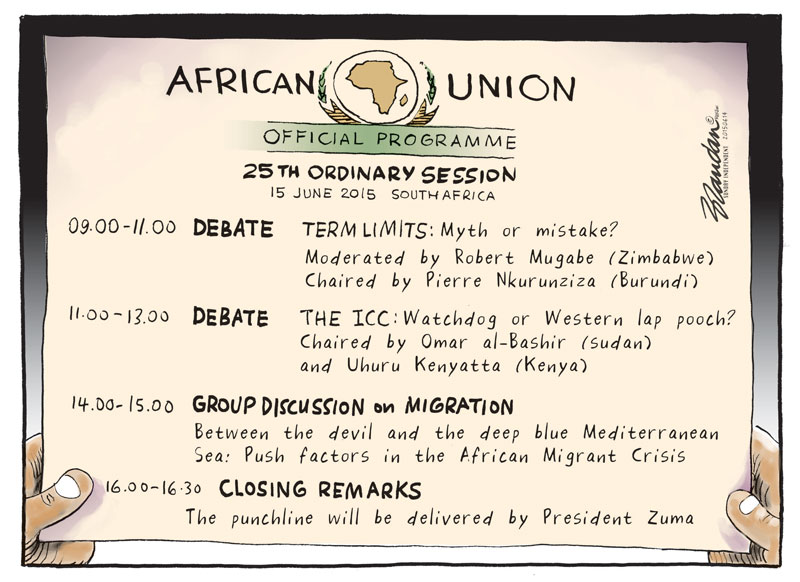 AFRICAN UNION
OFFICIAL PROGRAMME
25TH ORDINARY SESSION
15 JUNE 2015 SOUTH AFRICA
09.00-11.00 DEBATE TERM LIMITS: Myth or mistake?
Moderated by Robert Mugabe (Zimbabwe)
Chaired by Pierre Nkurunziza (Burundi)
11.00-13.00 DEBATE THE ICC: Watchdog or Western lap pooch?
Chaired by Omar al-Bashir (Sudan)
and Uhuru Kenyatta (Kenya)
14.00-15.00 GROUP DISCUSSION on MIGRATION
Between the devil and the deep blue Mediterranean
Sea: Push factors in the African Migrant Crisis
16.00-16.30 CLOSING REMARKS
The punchline will be delivered by President Zuma
Brandan ©
INDEPENDENT